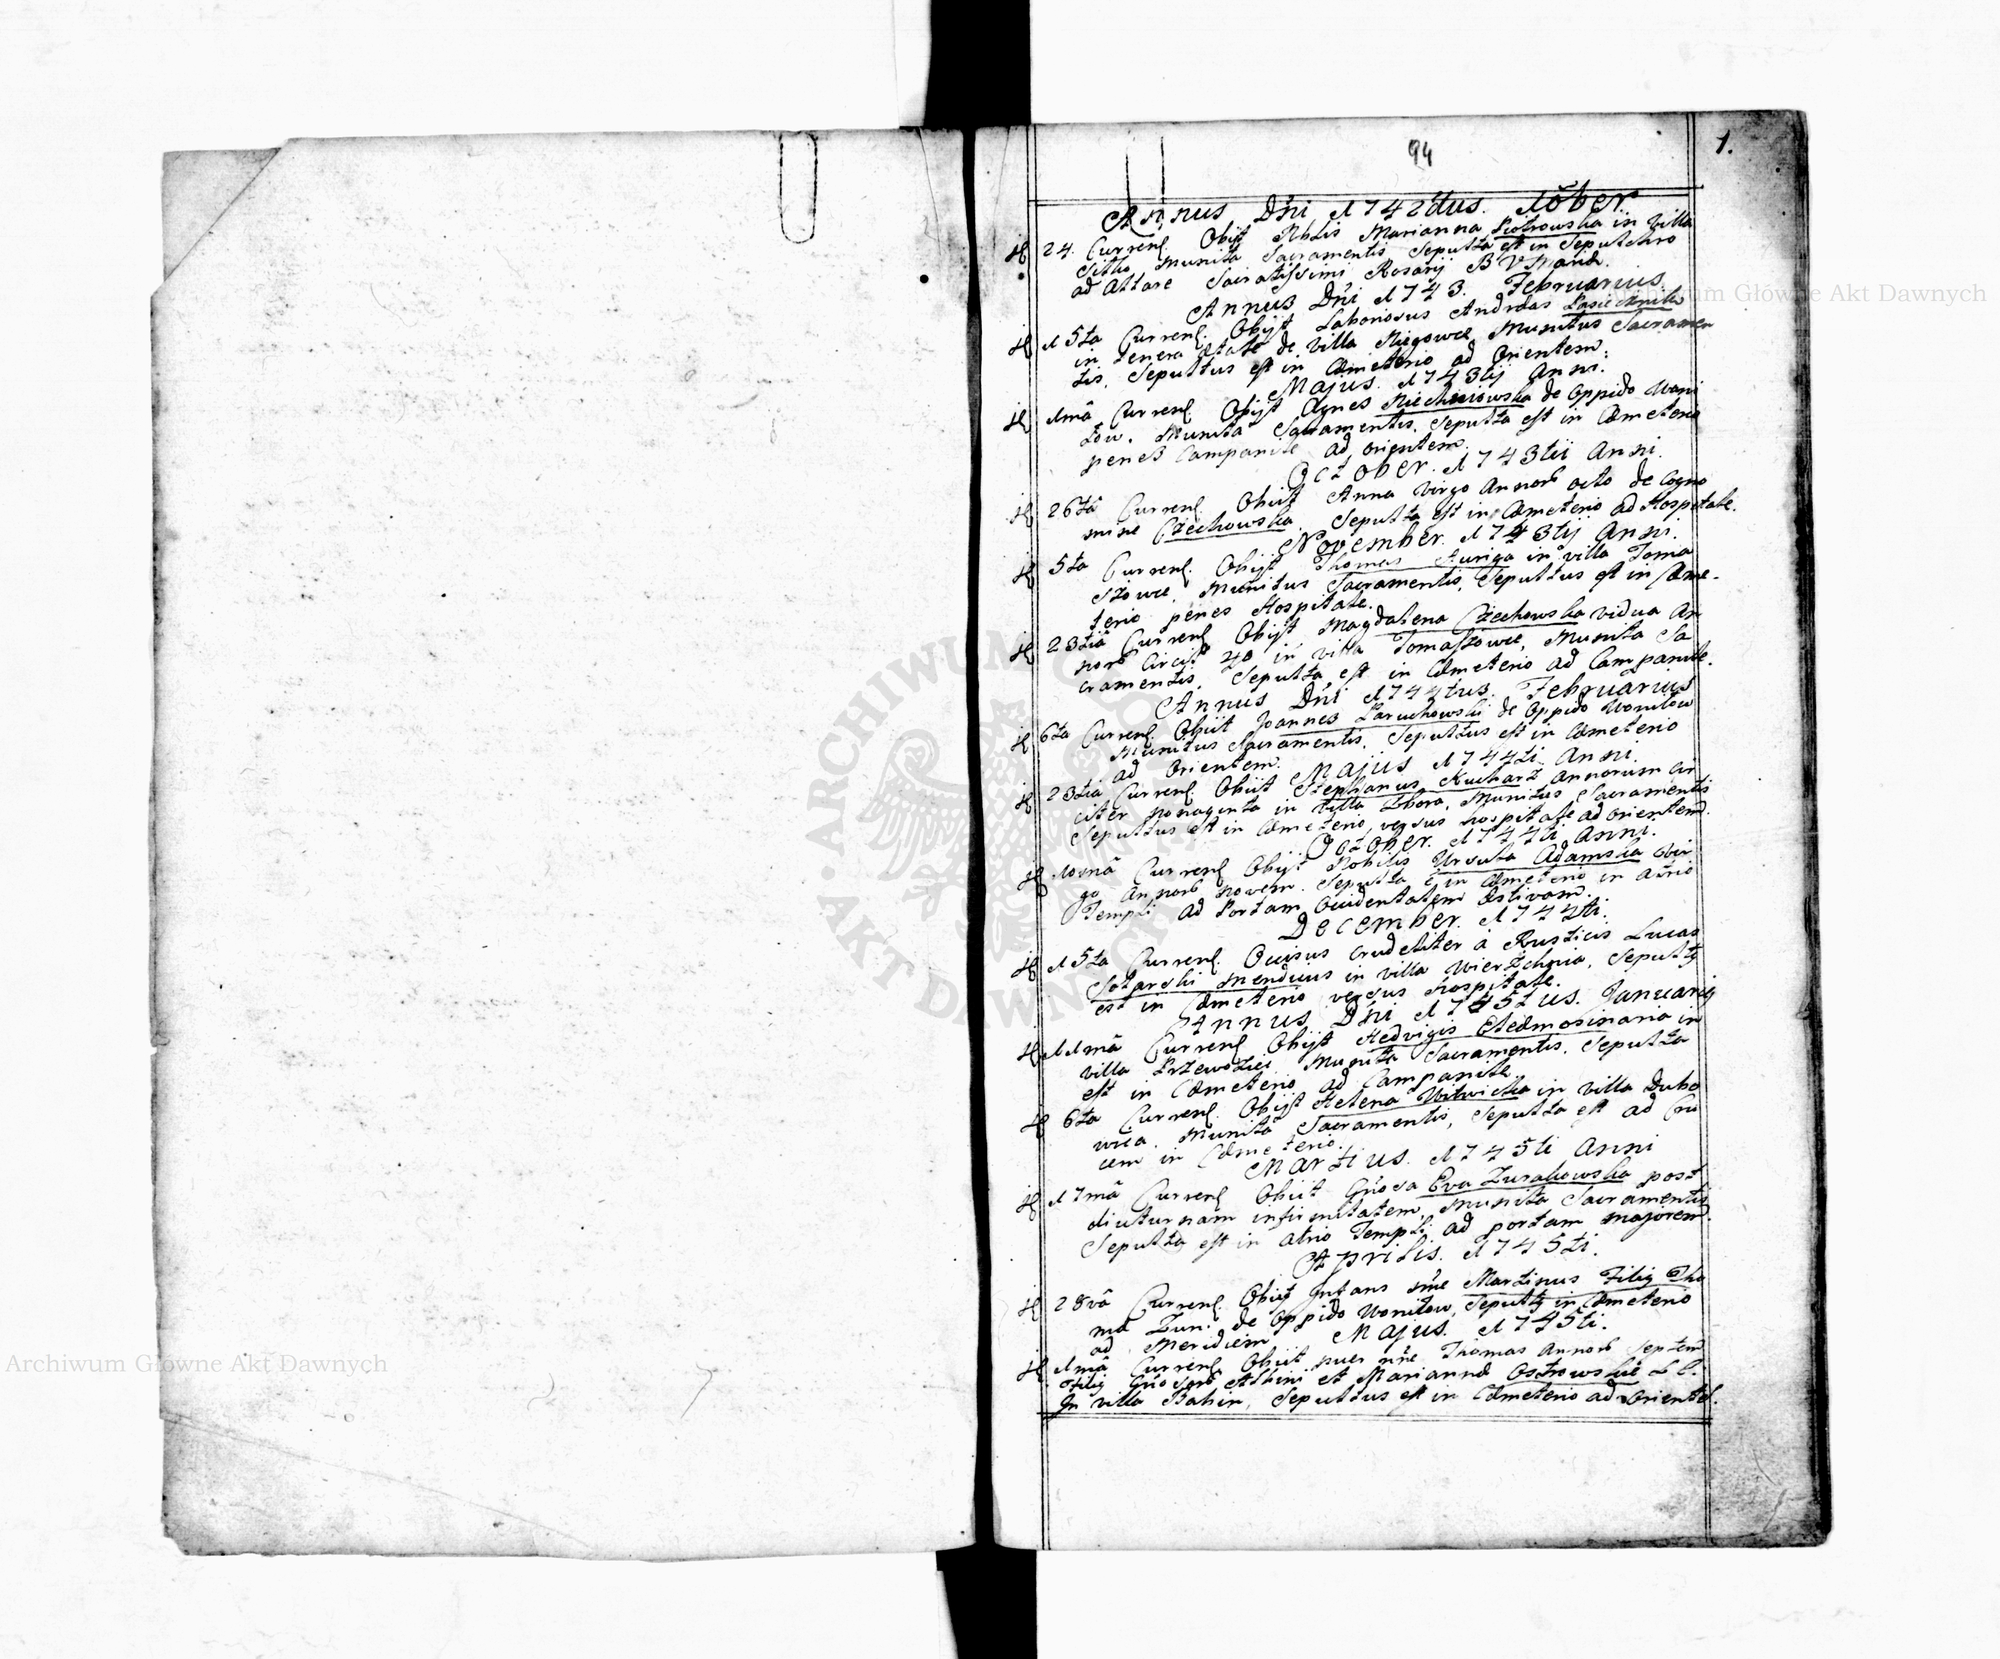 94
1.
Annus Dni 1742dus. Xber
24. Curren. Obijt Nblis Marianna Piotrowska in villa
Sitko munita Sacramentis Sepulta est in Sepulchro
ad Altare Sacratissimi Rosarij B V Mariæ.
Annus Dni 1743. Februarius.
15ta Curren. Obijt Laboriosus Andreas
in tenera ætate de villa Niegowce Munitus Sacramen
tis, Sepultus est in Cæmeterio ad Orientem.
Majus. 1743tij Anni.
1mâ Curren. Obijt Agnes Niechniowska de Oppido Woni
low. Munita Sacramentis. Sepulta est in Cæmeterio
penes Campanile ad orientem.
October. 1743tij Anni.
26tâ Curren. Obijt Anna Virgo Annorũ octo de Cogno
mine Czechowska. Sepulta est in Cæmeterio ad Hospitale.
November. 1743tij Anni.
5ta Curren. Obijt Thomas Auriga in villa Toma
szowce, Munitus Sacramentis, Sepultus est in Cæme-
terio penes Hospitale.
23tiâ Curren. Obijt Magdalena Czechowska vidua An
norũ Circit 40 in villa Tomaszowce, Munita Sa
cramentis, Sepulta est in Cæmeterio ad Campanile.
Annus Dni 1744tus. Februarius
6ta Curren. Obijt Joannes Paruchowski de Oppido Wonilow
Munitus Sacramentis, Sepultus est in Cæmeterio
ad Orientem.
Majus 1744ti Anni.
23tia Curren. Obiit Stephanus Kucharz Annorum Cir
citer nonaginta in villa Zbora, Munitus Sacramentis
Sepultus est in Cæmeterio versus hospitale ad orientem.
October. 1744ti Anni.
10mâ Curren. Obijt Nobilis Ursula Adamska Vir
go Annorũ novem. Sepulta ê in Cæmeterio in atrio
Templi ad Portam Occidentalem Æstivam.
December. 1744ti.
15ta Curren. Occisus crudeliter à Rusticis Lucas
Sotarski mendicus in villa Wierzchnia, Sepultg
est in Cæmeterio versus hospitale.
Annus Dni 1745tus. Januarij
11mâ Curren. Obijt Hedvigis Eleemosinaria in
villa Przewoziec Munita Sacramentis. Sepulta
est in Cæmeterio ad Campanile.
6ta Curren. Obijt Helena Witwicka in villa Dubo
wica. Munita Sacramentis, Sepulta est ad Cru
cem in Cæmeterio.
Martius. 1745ti Anni
17mâ Curren. Obiit Gñosa Eva Zurakowska post
diuturnam infirmitatem, Munita Sacramentis
Sepulta est in atrio Templi ad portam majorem.
Aprilis. 1745ti.
28vâ Curren. Obijt Infans nñe Martinus Filiq Tho
mæ Zun. de Oppido Wonilow, Sepultg in Cæmeterio
ad Meridiem
Majus. 1745ti.
1mâ Curren. Obiit puer nñe Thomas Annorũ Septem
Filig Gñosorũ Albini et Mariannæ Ostrowskie L C.
In villa Babin, Sepultus est in Cæmeterio ad Orientẽ.
ARCHIWUM GŁÓWNE AKT DAWNYCH
Archiwum Główne Akt Dawnych
Archiwum Główne Akt Dawnych